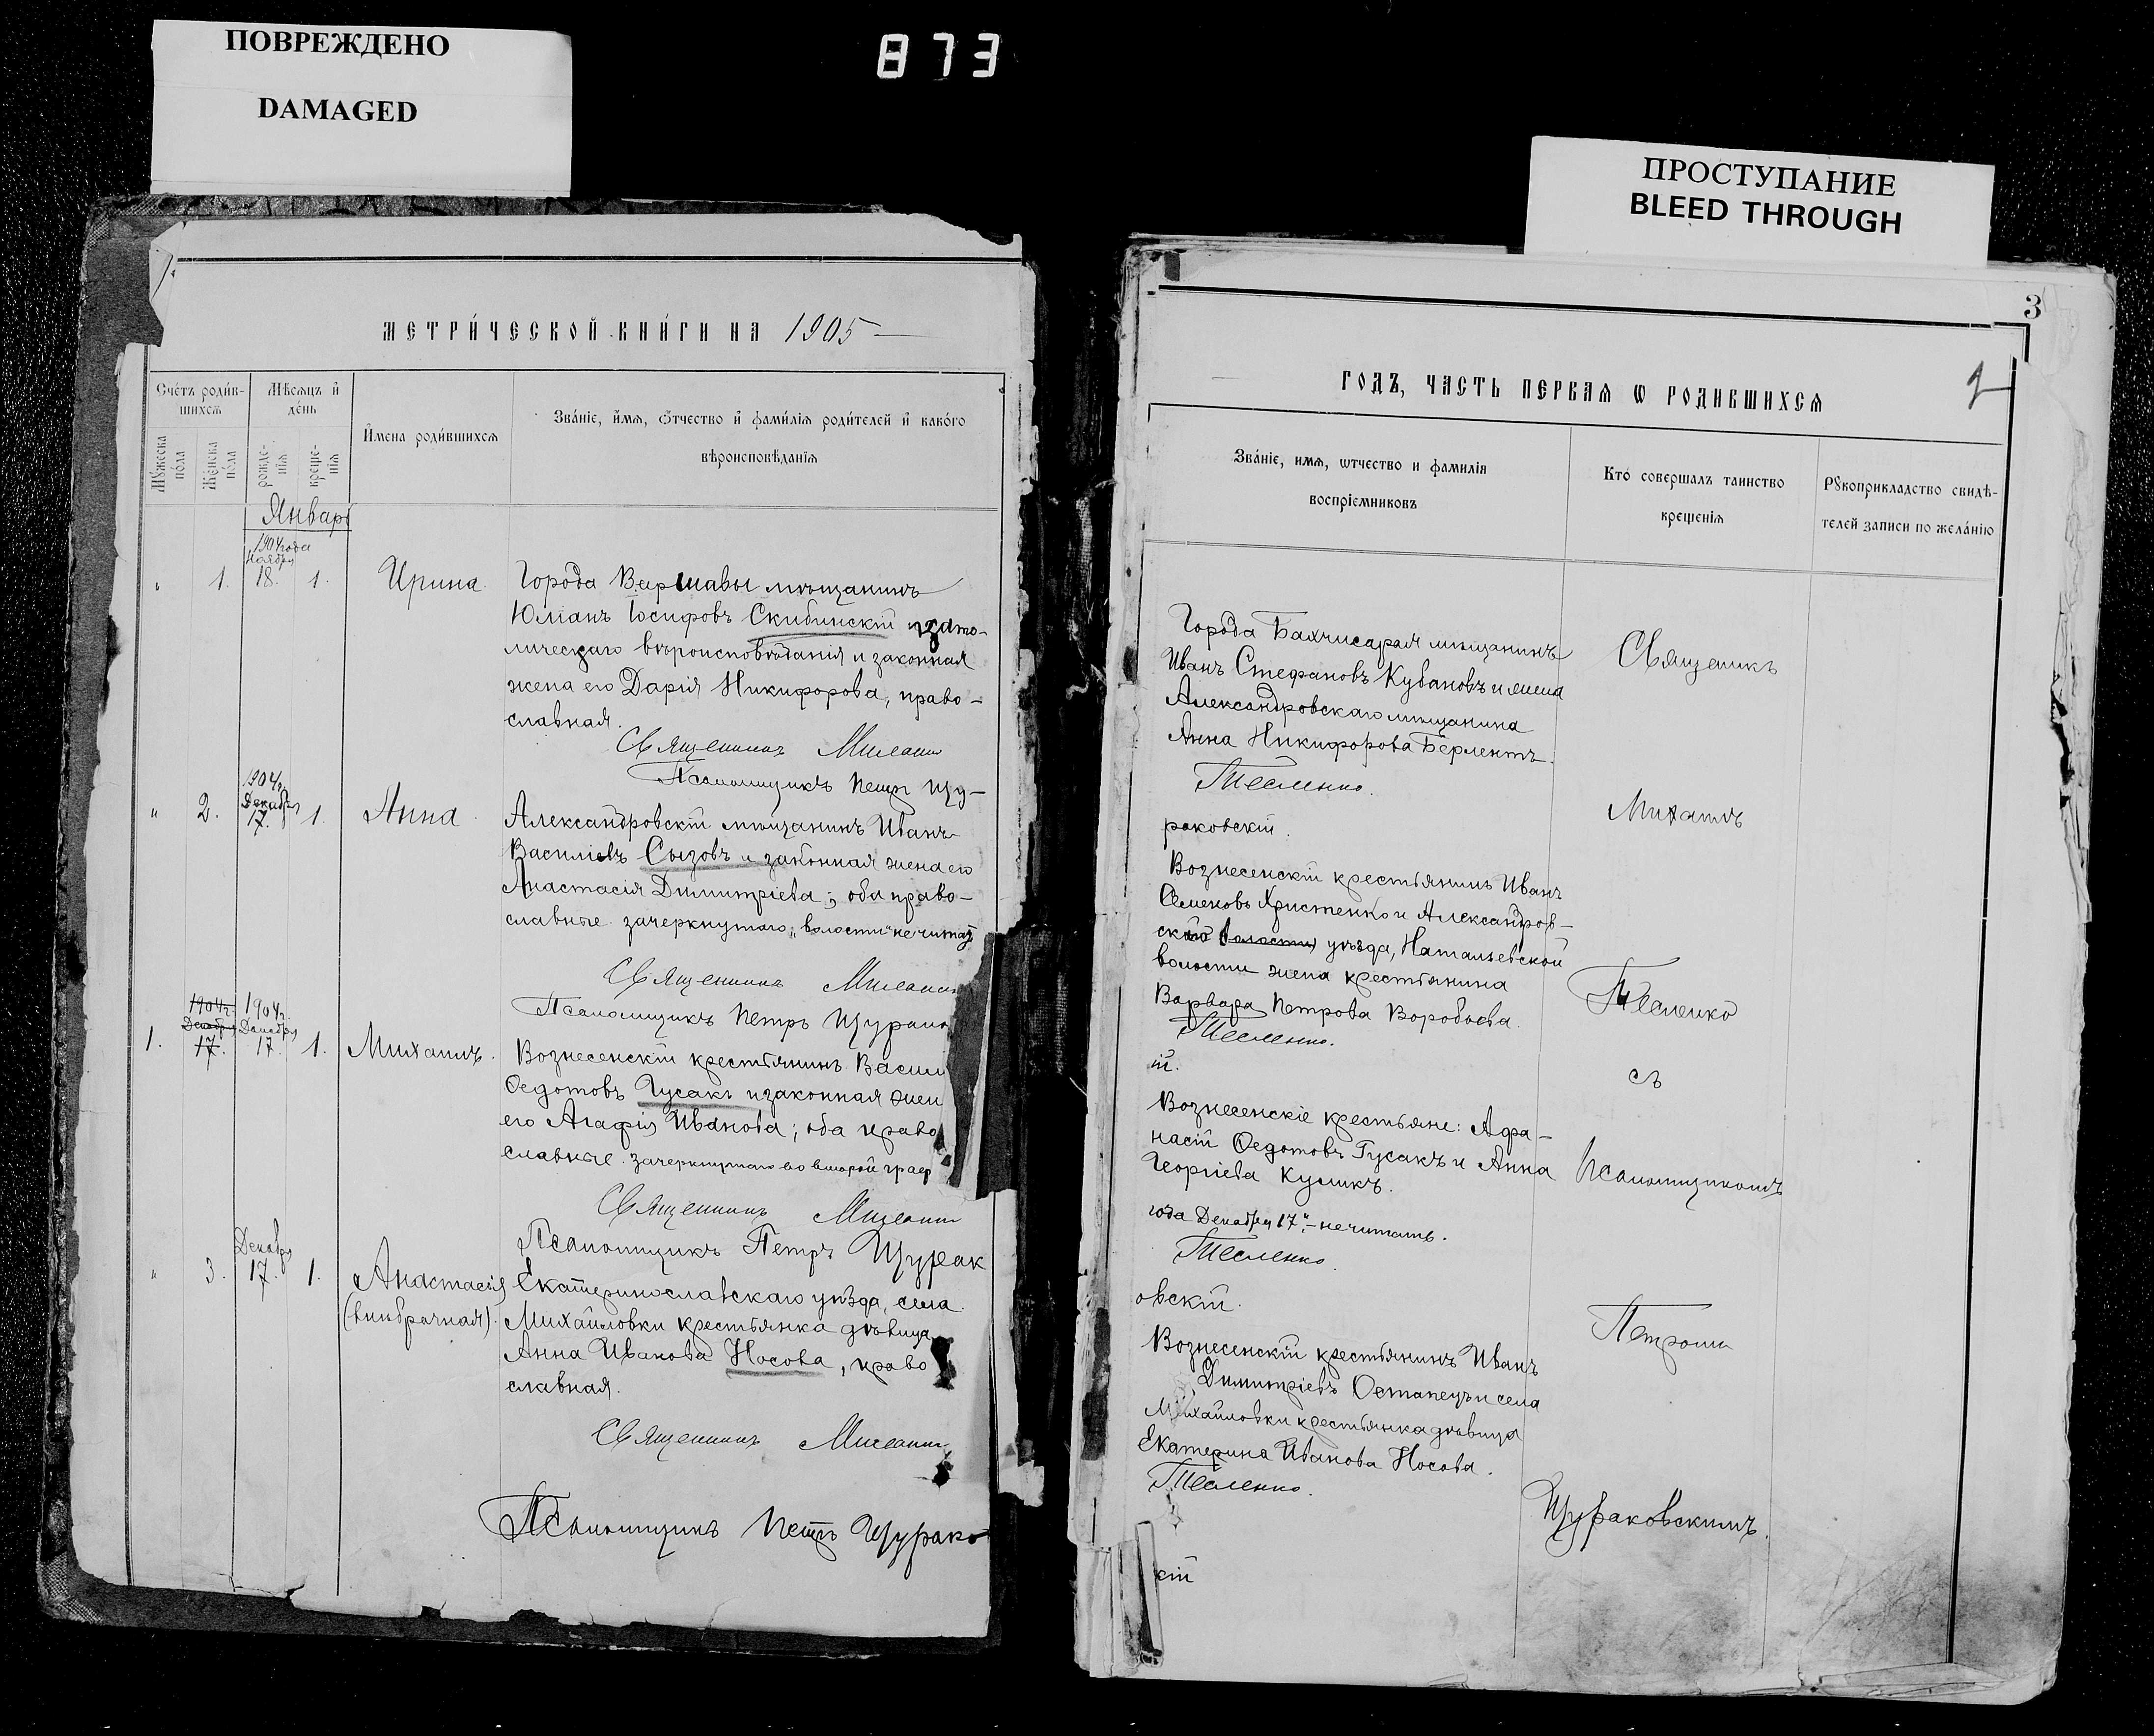 ПОВРЕЖДЕНО
DAMAGED
873
ПРОСТУПАНИЕ
BLEED THROUGH
МЕТРИ́ЧЕСКОЙ КНИ́ГИ НА 1905
Сче́тъ роди́в-
шихсѧ
Мѣсѧцъ и҆
де́нь
Мꙋ́жеска по́ла
Же́нска по́ла
рожде-
нїѧ
креще-
нїѧ
И҆мена роди́вшихсѧ
Зва́нїе, и҆́мѧ, ѻ҆́тчество и҆ фами́лїѧ роди́телей и҆ како́го
вѣроисповѣ́данїѧ
Январь
1904 года
Ноября
„ 1. 18. 1. Ирина.
Города Варшавы мѣщанинъ
Юліанъ Іосифовъ Скибинскій католи-
ческаго вѣроисповѣданія и законная
жена его Дарія Никифорова, право-
славная.
Священникъ Михаилъ
Псаломщикъ Петръ Щу-
1904 г.
Декабря
„ 2. 17. 1. Анна.
Александровскій мѣщанинъ Иванъ
Василіевъ Сызовъ и законная жена его
Анастасія Димитріева; оба право-
славные. зачеркнутаго „волости" не читать
Священникъ Михаилъ
Псаломщикъ Петръ Щурако
1904 г. 1904 г.
Декабря Декабря
1. 17. 17. 1. Михаилъ.
Вознесенскій крестьянинъ Васил
Ѳедотовъ Гусакъ и законная жен
его Агафія Иванова; оба право
славные. зачеркнутаго во второй граф
Священникъ Михаилъ
Псаломщикъ Петръ Щурак
Декабря
„ 3. 17. 1. Анастасія
(внѣбрачная).
Екатеринославскаго уѣзда, села
Михайловки крестьянка дѣвица
Анна Иванова Носова, право
славная.
Священникъ Михаилъ
Псаломщикъ Петръ Щурако
3
2
ГОДЪ, ЧАСТЬ ПЕРВАѦ Ѡ РОДИВШИХСѦ
Зва́нїе, имѧ, ѡтчество и фамилїѧ
воспрїемниковъ
Кто̀ совершалъ таинство
крещенїѧ
Рꙋкоприкладство свидѣ-
телей записи по жела́нїю
Города Бахчисарая мѣщанинъ
Иванъ Стефановъ Кувановъ и жена
Александровскаго мѣщанина
Анна Никифорова Берлентъ.
Тесленко.
раковскій.
Вознесенскій крестьянинъ Иванъ
Семеновъ Христенко и Александров-
ской волости уѣзда, Натальевской
волости жена крестьянина
Варвара Петрова Воробьева.
Тесленко.
ій.
Вознесенскіе крестьяне: Афа-
насій Ѳедотовъ Гусакъ и Анна
Георгіева Куликъ.
года Декабря 17" - не читать.
Тесленко.
овскій.
Вознесенскій крестьянинъ Иванъ
Димитріевъ Остапецъ и села
Михайловки крестьянка дѣвица
Екатерина Иванова Носова.
Тесленко.
кій
Священникъ
Михаилъ
Тесленко
съ
Псаломщикомъ
Петромъ
Щураковскимъ.